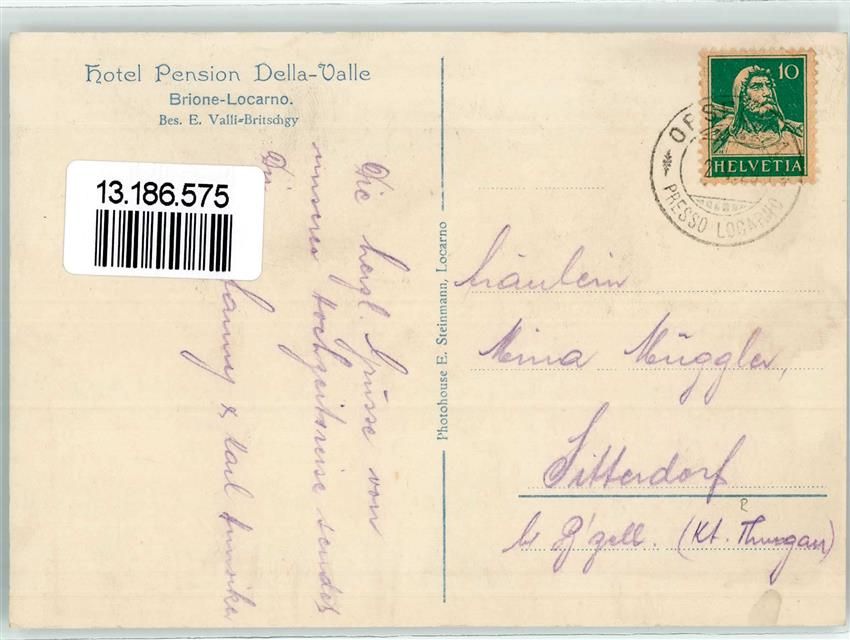 Hotel Pension Della-Valle
Brione-Locarno.
Bes. E. Valli-Britschgy
13.186.575
Die herzl. Grüsse von
unserer Hochzeitsreise sendet
Dir
Fanny & Karl
Photohouse E. Steinmann, Locarno
10
HELVETIA
PRESSO LOCARNO
Fräulein
Mina Müggler,
Sitterdorf
b/ B'zell. (Kt. Thurgau)